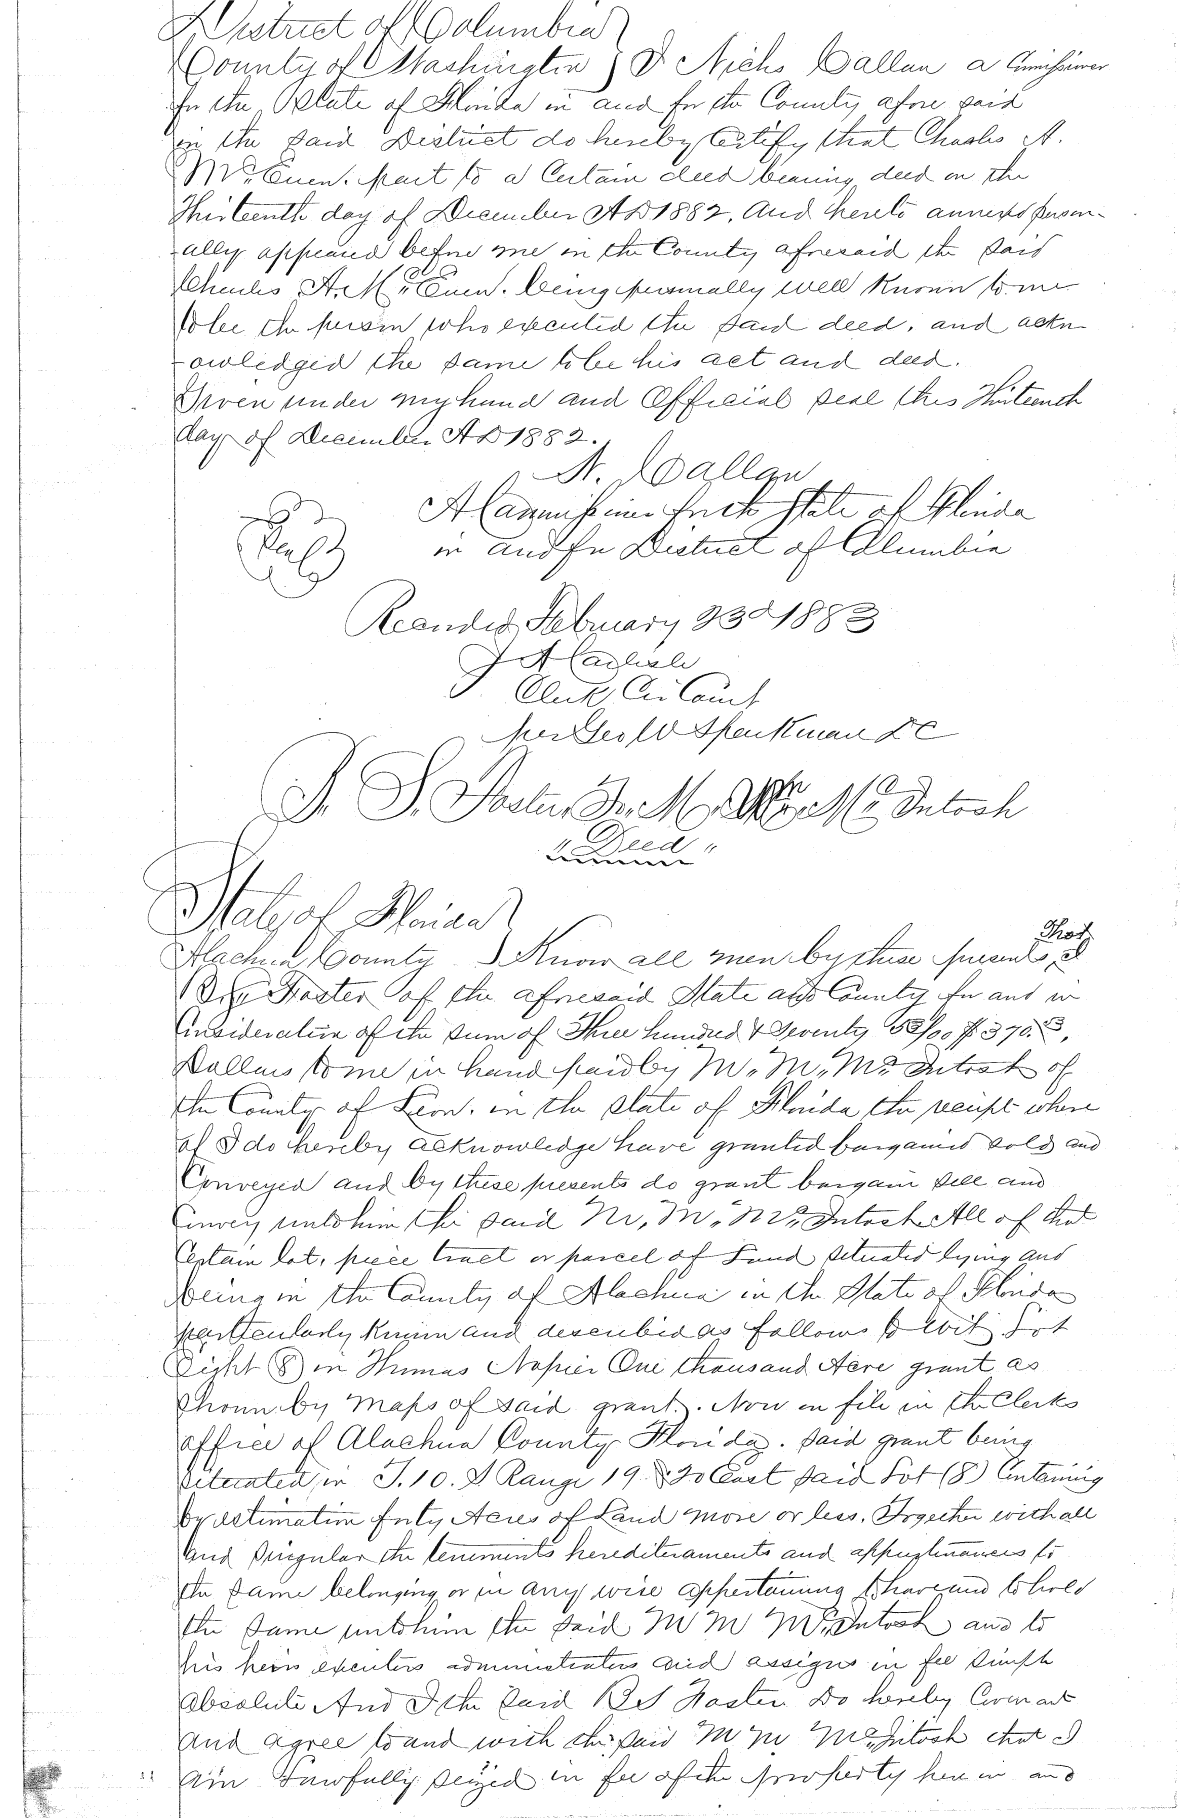 District of Columbia
County of Washington } I Nichs Callan a Commissioner
for the State of Florida in and for the County afore said
in the said District do hereby Certify that Charles A.
McEuen. part to a Certain deed bearing deed on the
Thirteenth day of December AD 1882. And hereto annexed person-
ally appeared before me in the County aforesaid the said
Charles A. McEuen. being personally well Known to me
to be the person who executed the said deed. and ackn-
owledged the same to be his act and deed.
Given under my hand and Official seal this Thirteenth
day of December AD 1882.
N. Callan
A Commissioner for the State of Florida
in and for District of Columbia
Seal
Recorded February 23d 1883
J A Carlisle
Clerk Cir Court
per Geo W Sparkman DC
Foster M. McIntosh
" Deed "
State of Florida
Alachua County } Know all men by these presents, That I
Foster of the aforesaid State and County for and in
Consideration of the sum of Three hundred & Seventy 53/00 $370.53,
Dollars to me in hand paid by M. M. McIntosh of
the County of Leon. in the State of Florida the receipt where
of I do hereby acknowledge have granted bargained sold and
Conveyed and by these presents do grant bargain sell and
Convey unto him the said M. M. McIntosh All of that
Certain lot, piece tract or parcel of Land situated lying and
being in the County of Alachua in the State of Florida
particularly Known and described as follows to wit Lot
Eight (8) in Thomas Napier One thousand Acre grant as
shown by Maps of said grant. Now on file in the Clerks
office of Alachua County Florida. said grant being
situated in T. 10. S Range 19 & 20 East said Lot (8) Containing
by estimation forty Acres of Land more or less. Together with all
and singular the tenements herediteraments and appurtinances to
the same belonging or in any wise appertaining to have and to hold
the same unto him the said M M McIntosh and to
his heirs executors administrators and assigns in fee simple
absolute And I the said Foster Do hereby Covenant
and agree to and with the said M M McIntosh that I
am Lawfully seized in fee of the property herein and